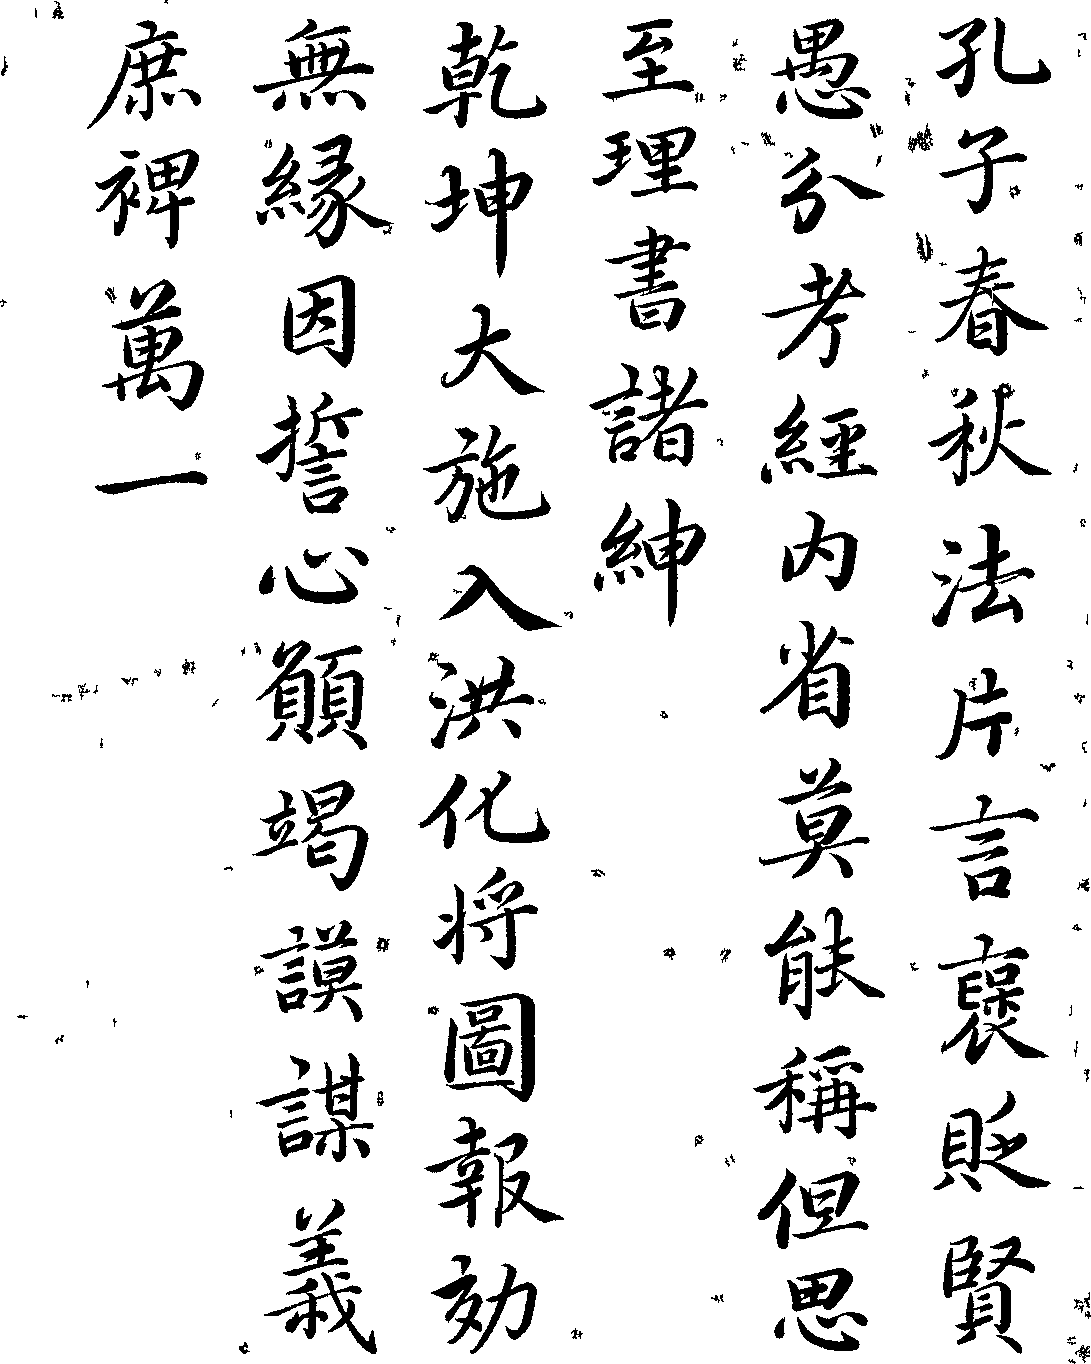 孔子春秋法片言褒貶賢
愚分考經内省莫能稱但思
至理書諸紳
乾坤大施入洪化将圖報効
無縁因誓心願竭謨謀義
庶裨萬一